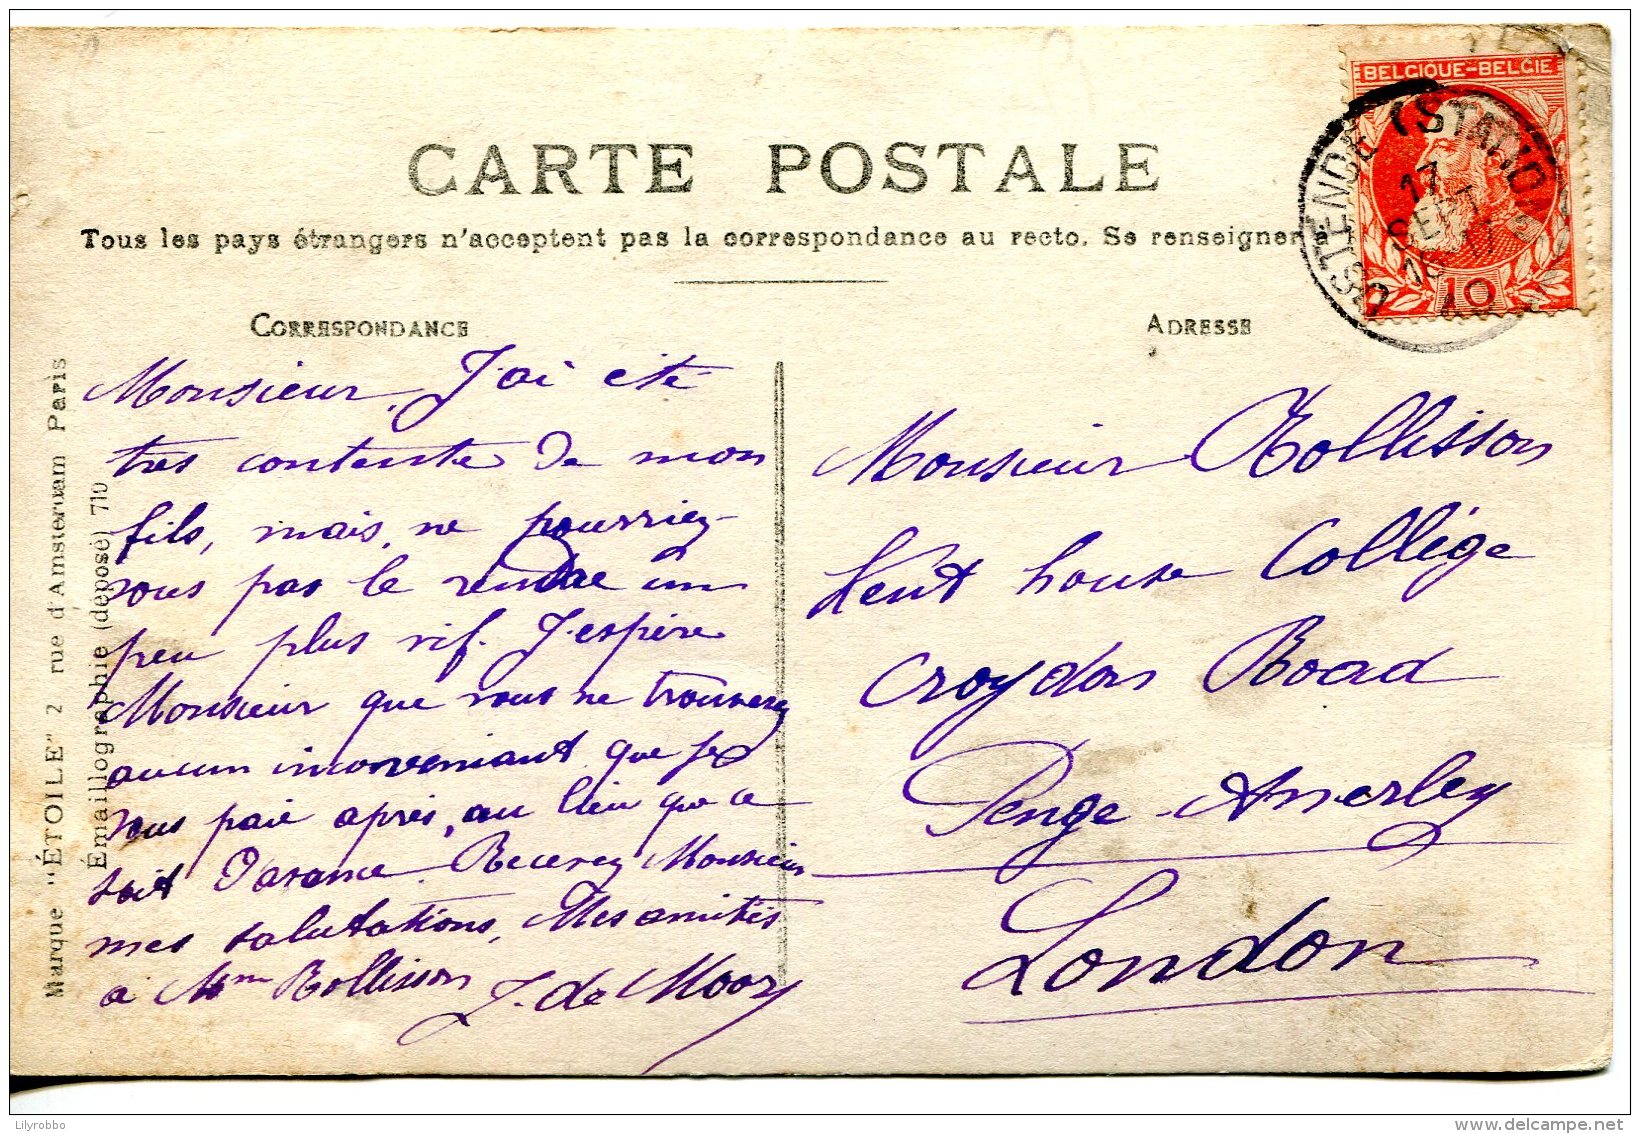 CARTE POSTALE
Tous les pays étrangers n'acceptent pas la correspondance au recto. Se renseigner à
CORRESPONDANCE
ADRESSE
BELGIQUE-BELGIE
10
OSTENDE (STATION)
17
SEPT
Monsieur, J'ai été
tres contente de mon
fils, mais, ne pourriez-
vous pas le rendre un
peu plus vif. J'espère
Monsieur que vous ne trouverez
aucun inconveniant que je
vous paie après, au lieu que ce
soit d'avance. Recevez Monsieur
mes salutations, Mes amitiés
à Mme Rollisson J. de Moory
Monsieur Rollisson
Kent house Collége
Croydon Road
Penge-Anerley
London
Marque "ÉTOILE" 2 rue d'Amsterdam Paris
Émaillographie (déposé) 710
Lilyrobbo
delcampe.net